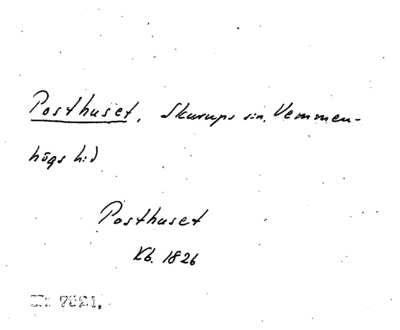 Posthuset, Skurups sn, Vemmen-
högs hd
Posthuset
Kb. 1826